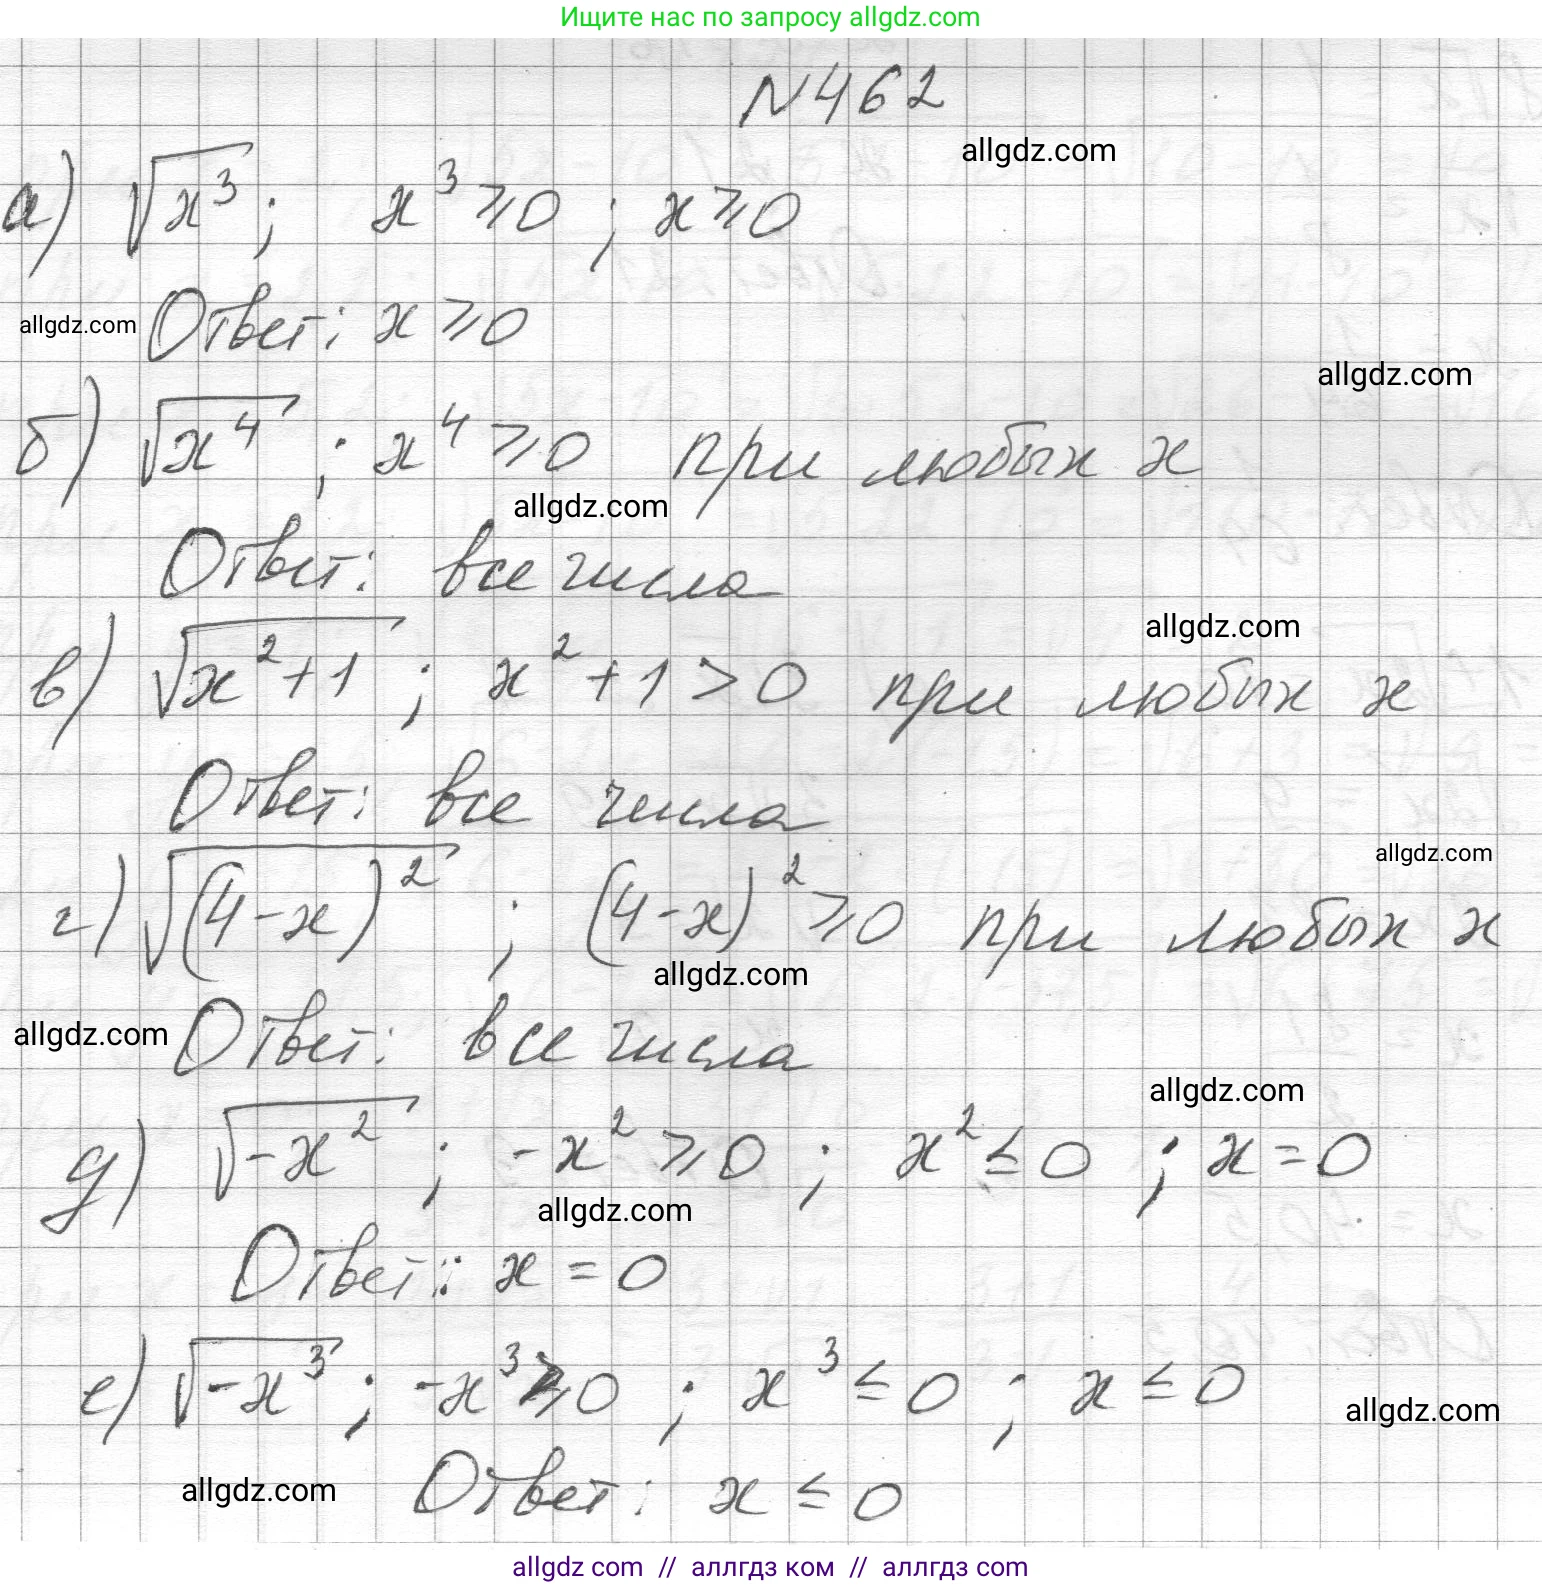 Ищите нас по запросу allgdz.com
N462
allgdz.com
а) √x³; x³ ⩾ 0; x ⩾ 0
allgdz.com Ответ: x ⩾ 0
allgdz.com
б) √x⁴; x⁴ ⩾ 0 при любых x
allgdz.com
Ответ: все числа
allgdz.com
в) √x²+1; x²+1 > 0 при любых x
Ответ: все числа
allgdz.com
г) √(4-x)²; (4-x)² ⩾ 0 при любых x
allgdz.com
allgdz.com Ответ: все числа
allgdz.com
д) √-x²; -x² ⩾ 0; x² ≤ 0; x = 0
allgdz.com
Ответ: x = 0
е) √-x³; -x³ ⩾ 0; x³ ≤ 0; x ≤ 0
allgdz.com
allgdz.com Ответ: x ≤ 0
allgdz com // аллгдз ком // аллгдз com